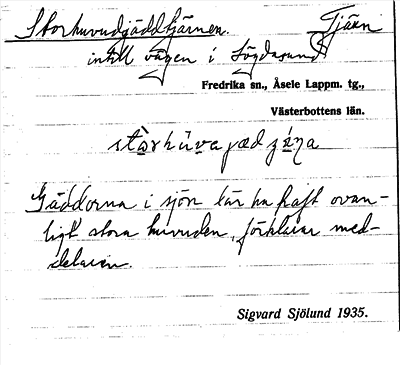 Storhuvudgäddtjärnen. Tjärn
intill vägen i Lögdasund
Fredrika sn., Åsele Lappm. tg.,
Västerbottens län.
Gäddorna i sjön lär ha haft ovan-
ligt stora huvuden, förklarar med-
delaren.
Sigvard Sjölund 1935.